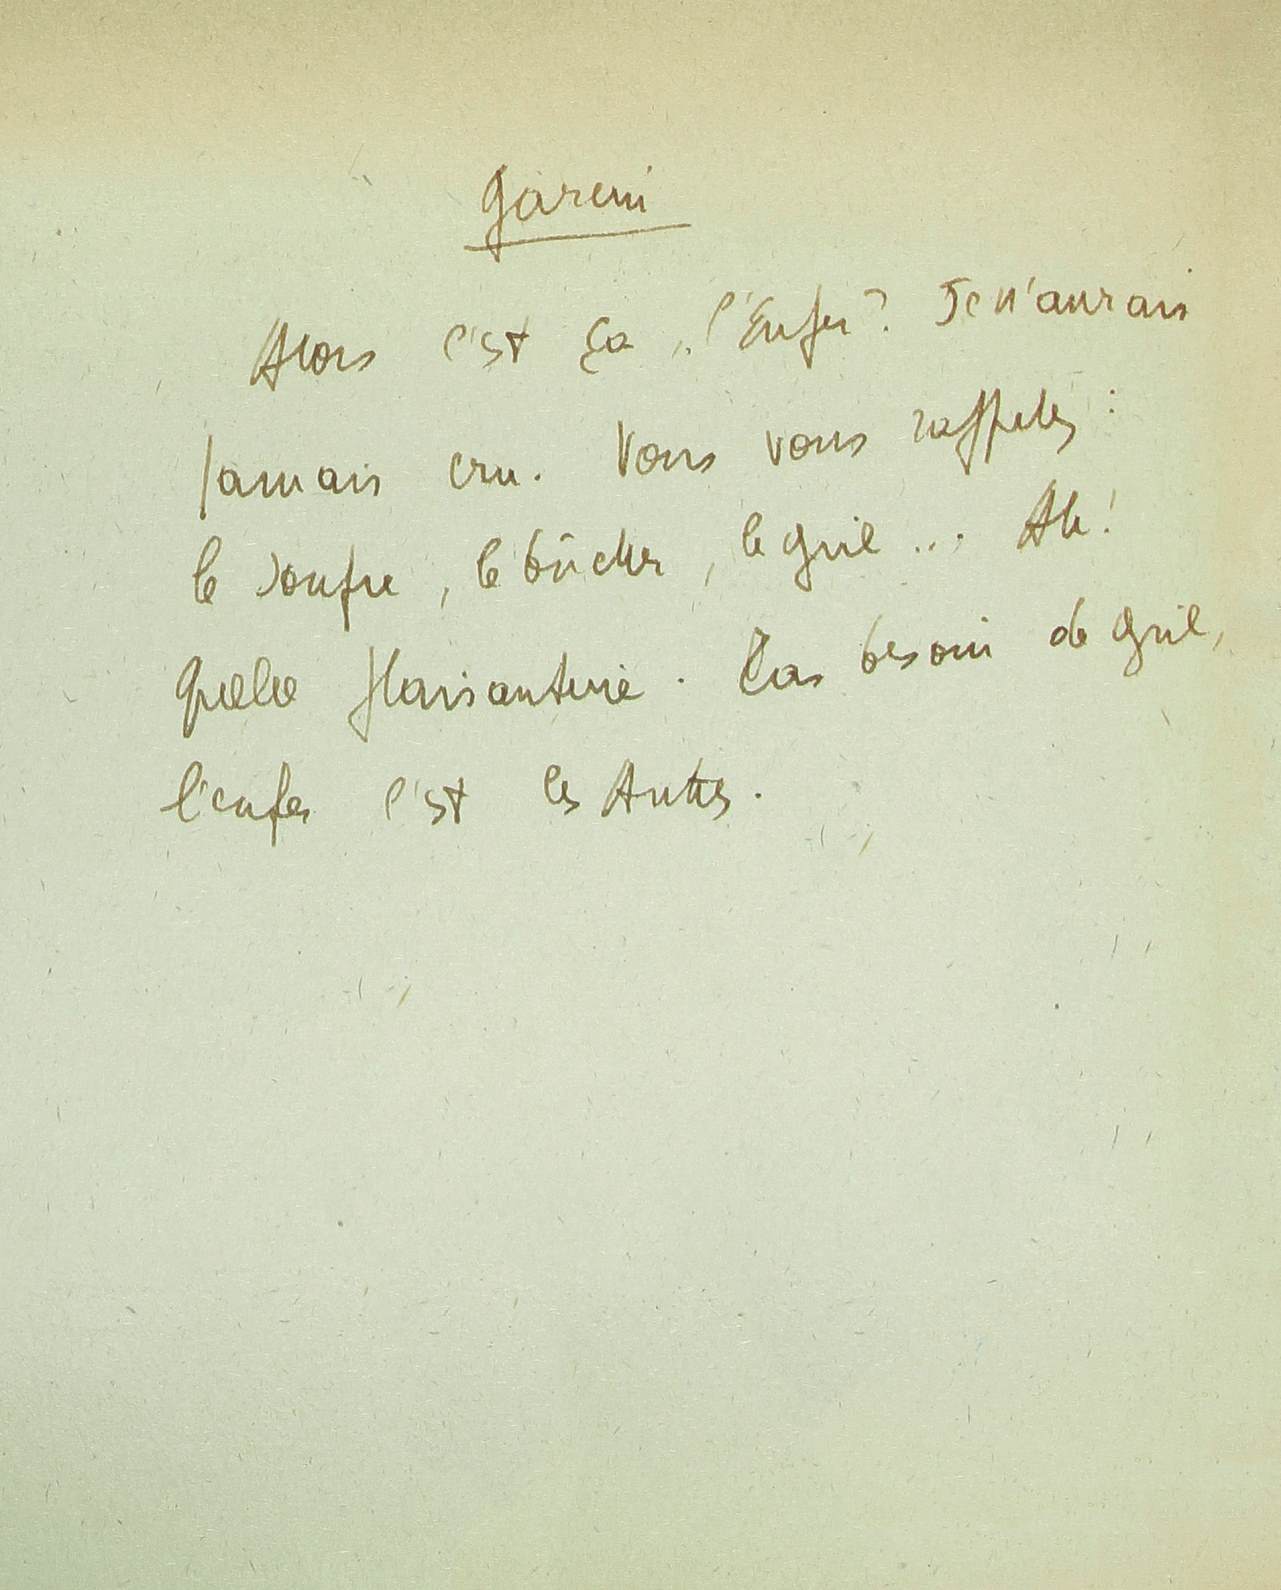 Garcin
Alors c'est ça, l'Enfer? Je n'aurais
jamais cru. Vous vous rappelez :
le soufre, le bûcher, le gril ... Ah!
Quelle plaisanterie. Pas besoin de gril,
l'enfer c'est les Autres.